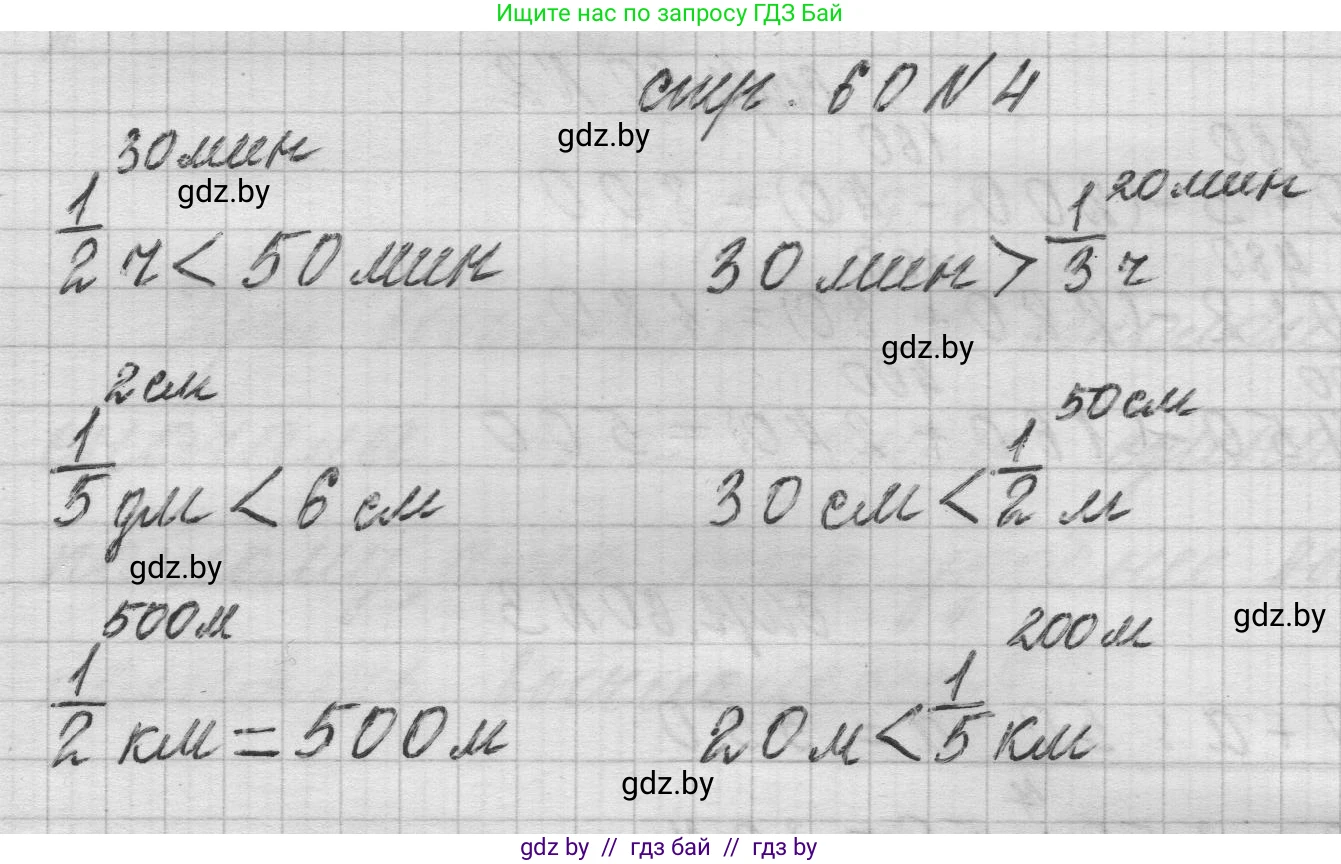 Ищите нас по запросу ГДЗ Бай
стр. 60 N 4
gdz.by
30 мин
gdz.by
1/2 ч < 50 мин
20 мин
30 мин > 1/3 ч
gdz.by
2 см
1/5 дм < 6 см
50 см
30 см < 1/2 м
gdz.by
500 м
1/2 км = 500 м
gdz.by
200 м
20 м < 1/5 км
gdz.by
gdz by // гдз бай // гдз by